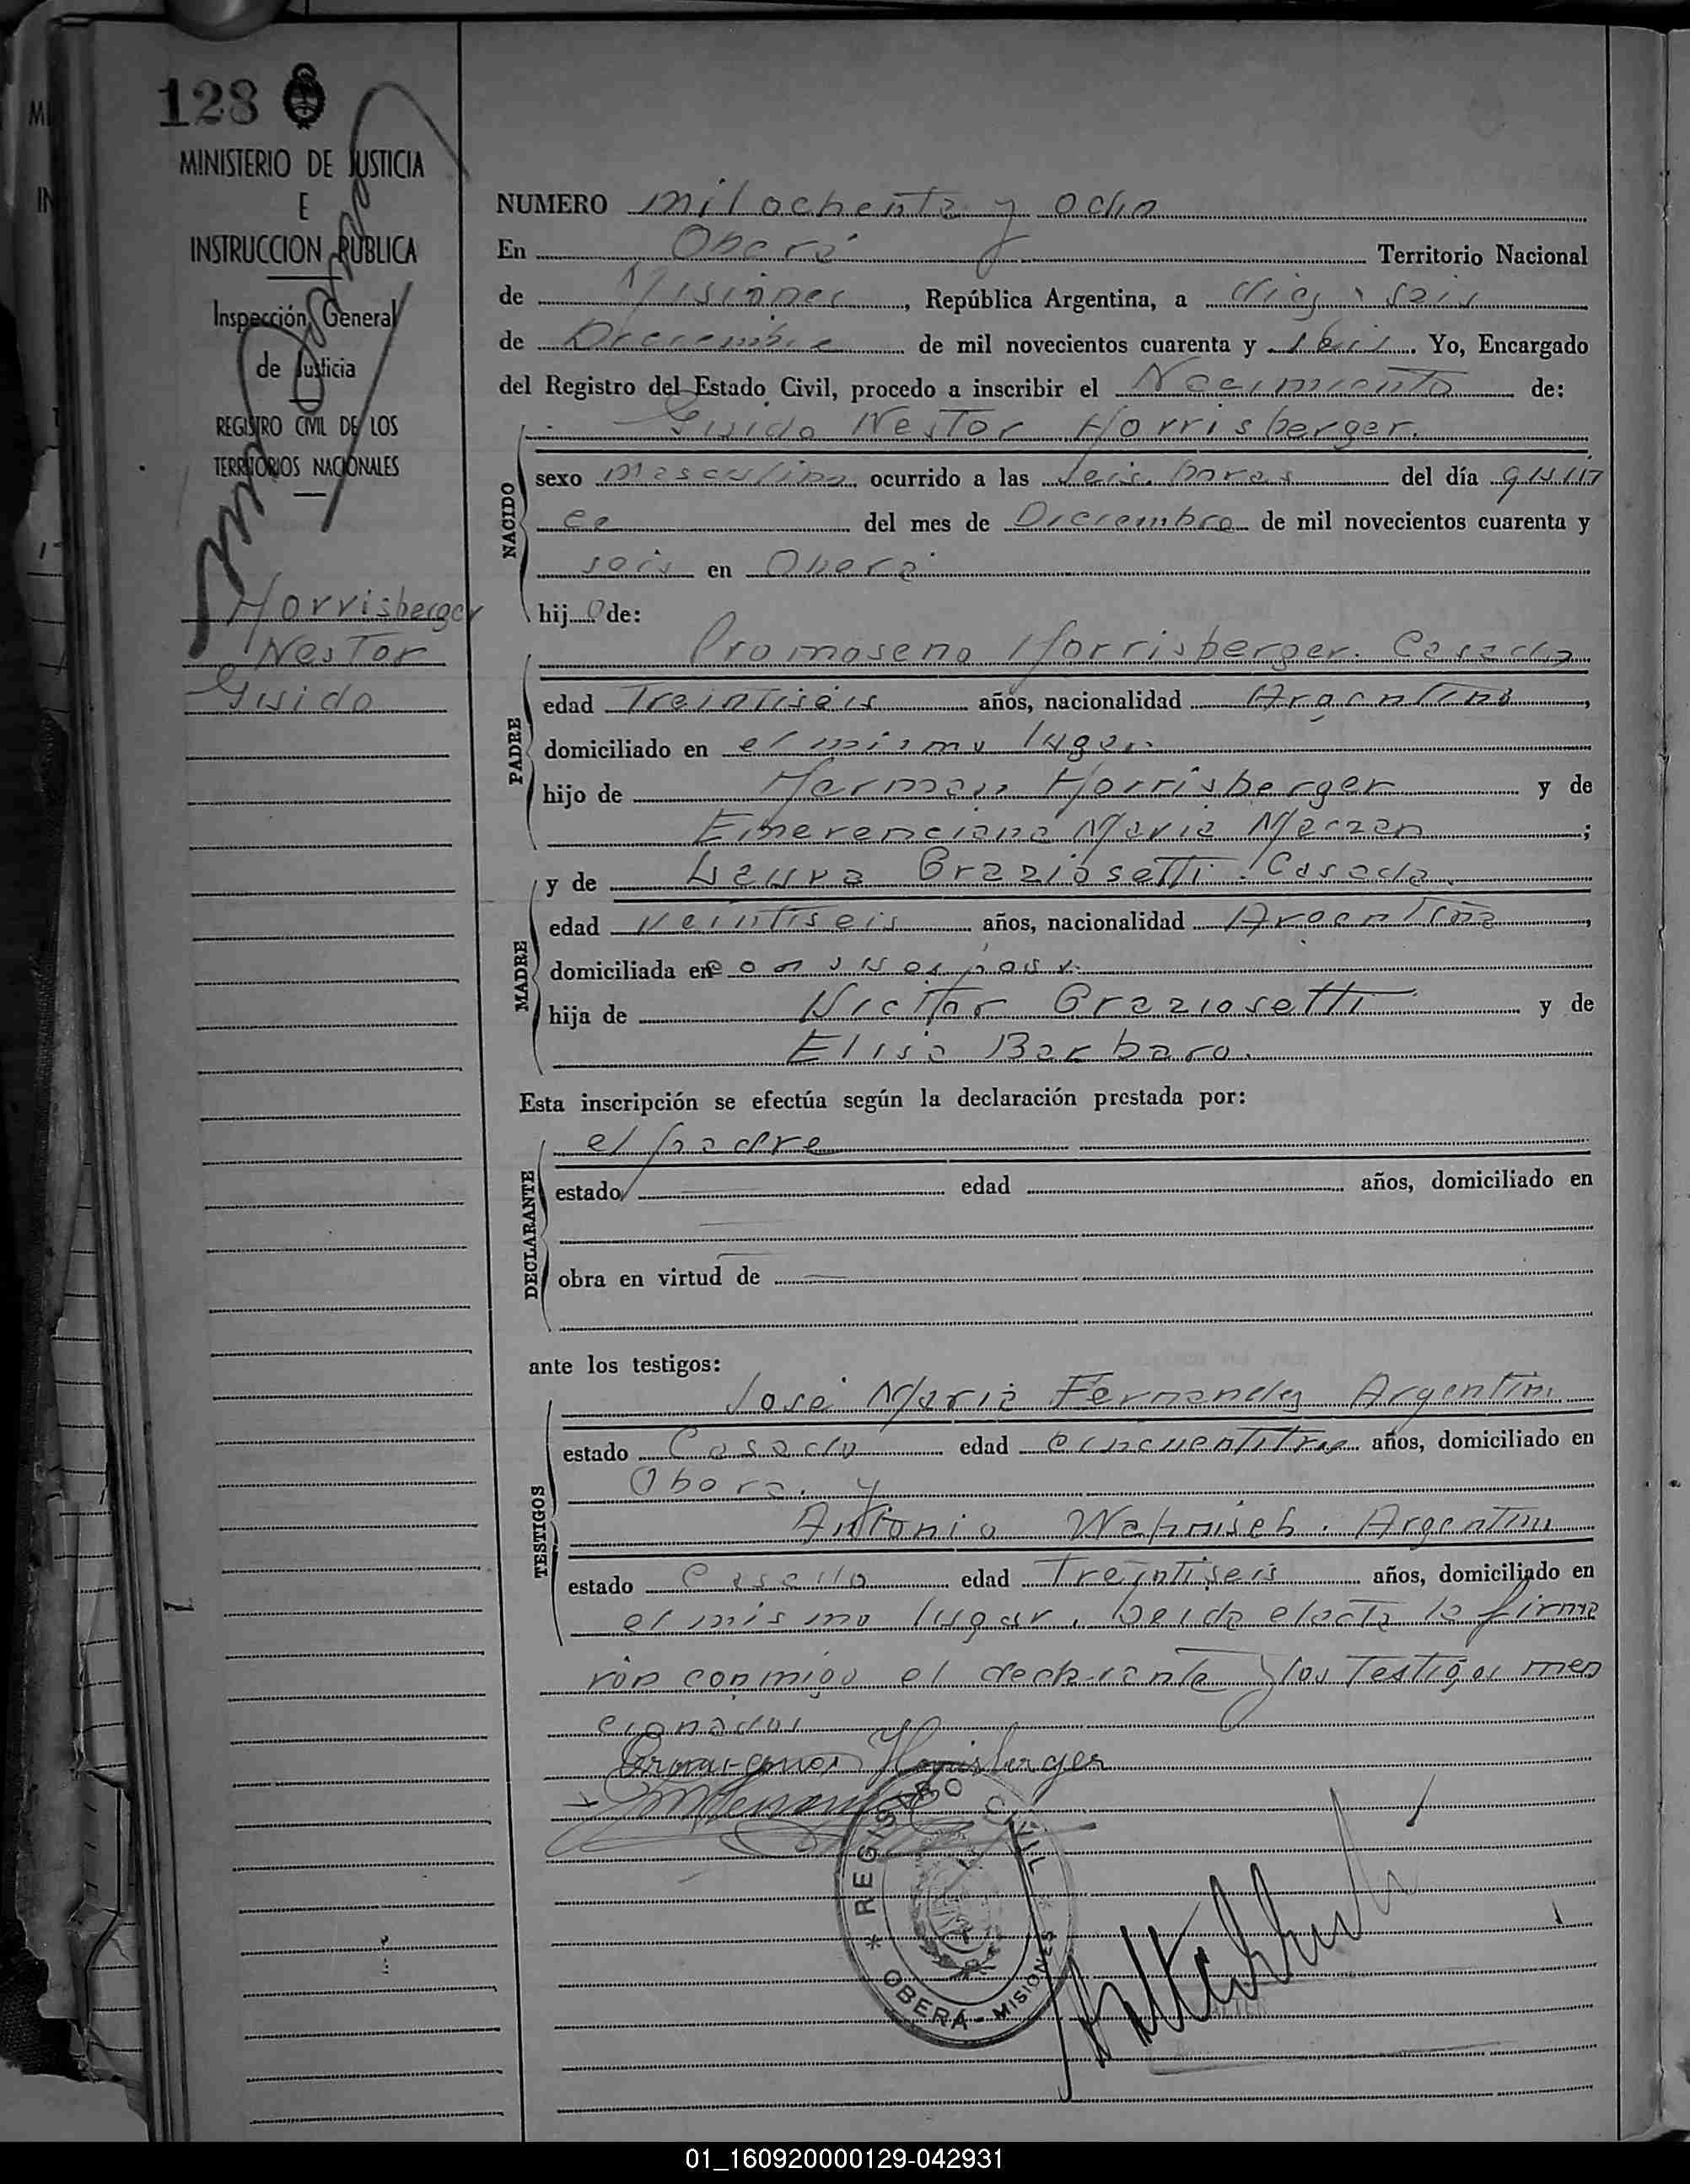 128
MINISTERIO DE JUSTICIA
E
INSTRUCCION PUBLICA
Inspección General
de Justicia
REGISTRO CIVIL DE LOS
TERRITORIOS NACIONALES
Horrisberger
Nestor
Guido
NUMERO mil ochenta y ocho
En Oberá Territorio Nacional
de Misiones, República Argentina, a diez y seis
de Diciembre de mil novecientos cuarenta y seis. Yo, Encargado
del Registro del Estado Civil, procedo a inscribir el Nacimiento de:
Guido Nestor Horrisberger.
NACIDO
sexo masculino ocurrido a las seis horas del día quin
ce del mes de Diciembre de mil novecientos cuarenta y
seis en Oberá
hijo de:
PADRE
Horrisberger. Casado
edad Treintiséis años, nacionalidad Argentino,
domiciliado en el mismo lugar.
hijo de Herman Horrisberger y de
Emerenciana Maria Marzen;
MADRE
y de Laura Graziosetti. Casada.
edad Veintiseis años, nacionalidad Argentina,
domiciliada en con su esposo.
hija de Victor Graziosetti y de
Elisa Barbaro.
Esta inscripción se efectúa según la declaración prestada por:
DECLARANTE
el padre
estado edad años, domiciliado en
obra en virtud de
ante los testigos:
TESTIGOS
José Maria Fernandez Argentino
estado Casado edad cincuentitres años, domiciliado en
Obera. y
Antonio Argentino
estado Casado edad Treintiseis años, domiciliado en
el mismo lugar. Leida el acta la firma
ron conmigo el declarante y los Testigos men
cionados
Horrisberger
REGISTRO CIVIL
OBERÁ - MISIONES
01_160920000129-042931